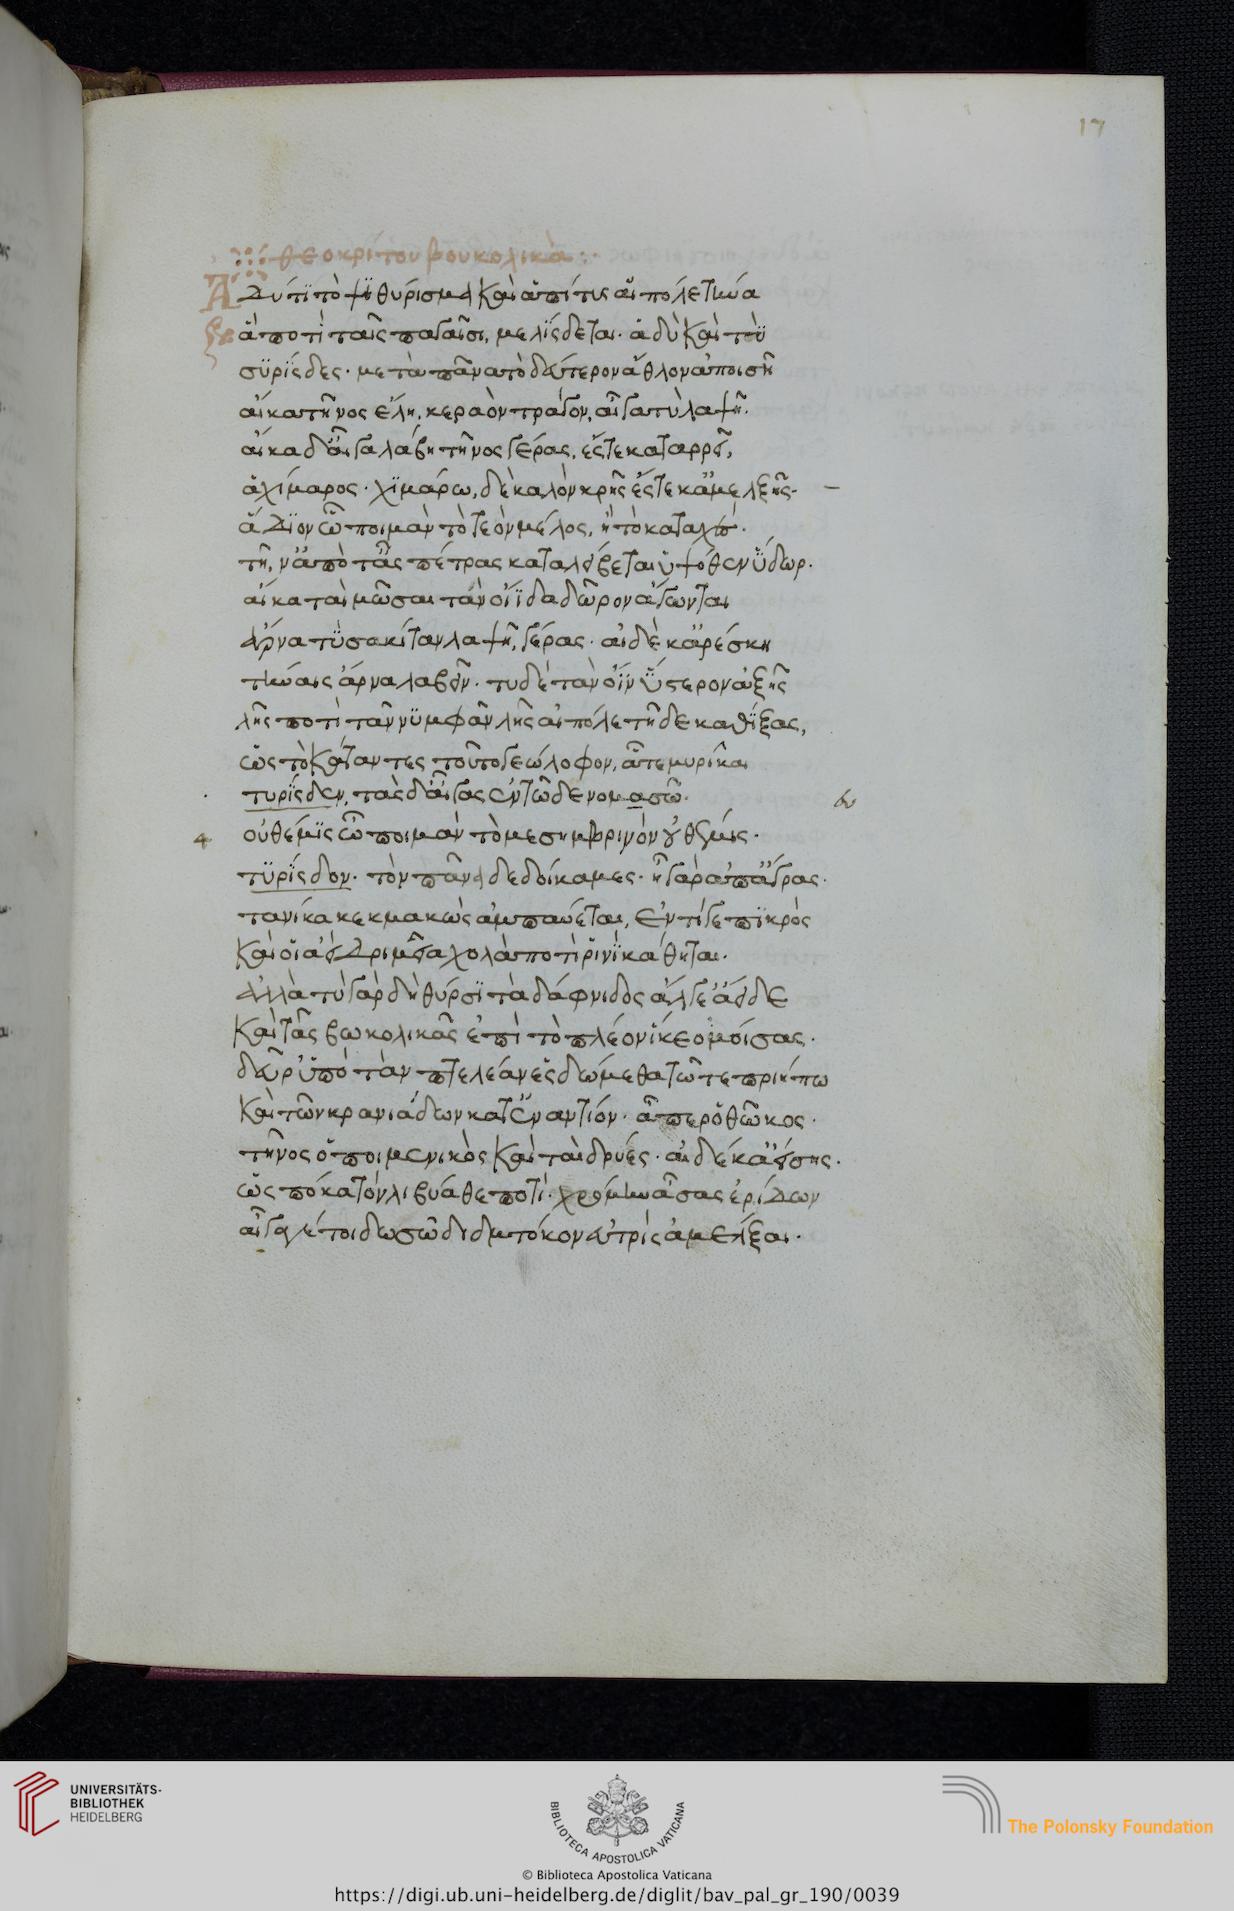 17
θεοκρίτου βουκολικὰ:·
Ἁδύ τϊ τὸ ψϊθύρισμα καὶ ἁ πίτυς αἴπόλε τήνα
ἁ ποτὶ ταῖς παγαῖσι, μελίσδεται· ἁδὺ καὶ τὺ
συρίσδες· μετὰ πᾶνα τὸ δεύτερον ἄθλον ἀποισῆ
αἴκα τῆνος ἕλη, κεραὸν τράγον, αἶγα τὺ λαψῆ·
αἴκα δ' αἶγα λάβη τῆνος γέρας, ἔς τε καταρρεῖ,
ἁ χίμαρος· χϊμάρω, δὲ καλὸν κρῆς ἔς τε κ' ἀμελξῆς·
ἅδϊον ὦ ποιμὰν τὸ τεὸν μέλος, ἢ τὸ καταχὲς
τῆν' ἀπὸ τᾶς πέτρας καταλείβεται ὑψόθεν ὕδωρ·
αἴκα ταὶ μῶσαι τὰν οἴϊδα δῶρον ἄγωνται
ἄρνα τὺ σακίταν λαψῆ, γέρας· αἰ δέ κ' ἀρέσκη
τήναις ἄρνα λαβεῖν· τυ δὲ τὰν ὄϊν ὕστερον ἀξῆς
λῆς ποτὶ τᾶν νυμφᾶν λῆς αἰπόλε τῆδε καθίξας,
ὡς τὸ κάταντες τοῦτο γεώλοφον, ἇτε μυρῖκαι
τυρίσδεν, τὰς δ' αἶγας ἐν τῶδε νομασῶ·
οὐ θέμϊς ὦ ποιμὰν τὸ μεσημβρινὸν οὐ θέμις·
τϋρίσδον· τὸν πᾶνα δεδοίκαμες· ἦ γὰρ ἀπ' ἄγρας·
τανίκα κεκμακὼς ἀμπαύεται, ἐντί γε πϊκρὸς
καὶ οἱ ἀεὶ δριμεῖα χολὰ ποτὶ ῥινὶ κάθηται·
ἀλλὰ τὺ γὰρ δὴ θύρσϊ τὰ δάφνιδος ἄλγε' ἄειδε
καὶ τᾶς βωκολικᾶς ἐπὶ τὸ πλέον ἵκεο μοίσας·
δεῦρ' ὑπὸ τὰν πτελέαν ἑσδώμεθα τῶ τε πριήπω
καὶ τῶν κρανιάδων κατεναντίον· ἇπερ ὁ θῶκος·
τῆνος ὁ ποιμενικὸς καὶ ταὶ δρύες· αἰ δέ κ' ἀείσης·
ὡς πόκα τὸν λιβύαθε ποτὶ· χρόμιν ᾆσας ἐρίσδων
αἶγα τέ τοι δωσῶ διδυμτόκον ἐς τρὶς ἀμέλξαι·
UNIVERSITÄTS-
BIBLIOTHEK
HEIDELBERG
BIBLIOTECA APOSTOLICA VATICANA
© Biblioteca Apostolica Vaticana
The Polonsky Foundation
https://digi.ub.uni-heidelberg.de/diglit/bav_pal_gr_190/0039